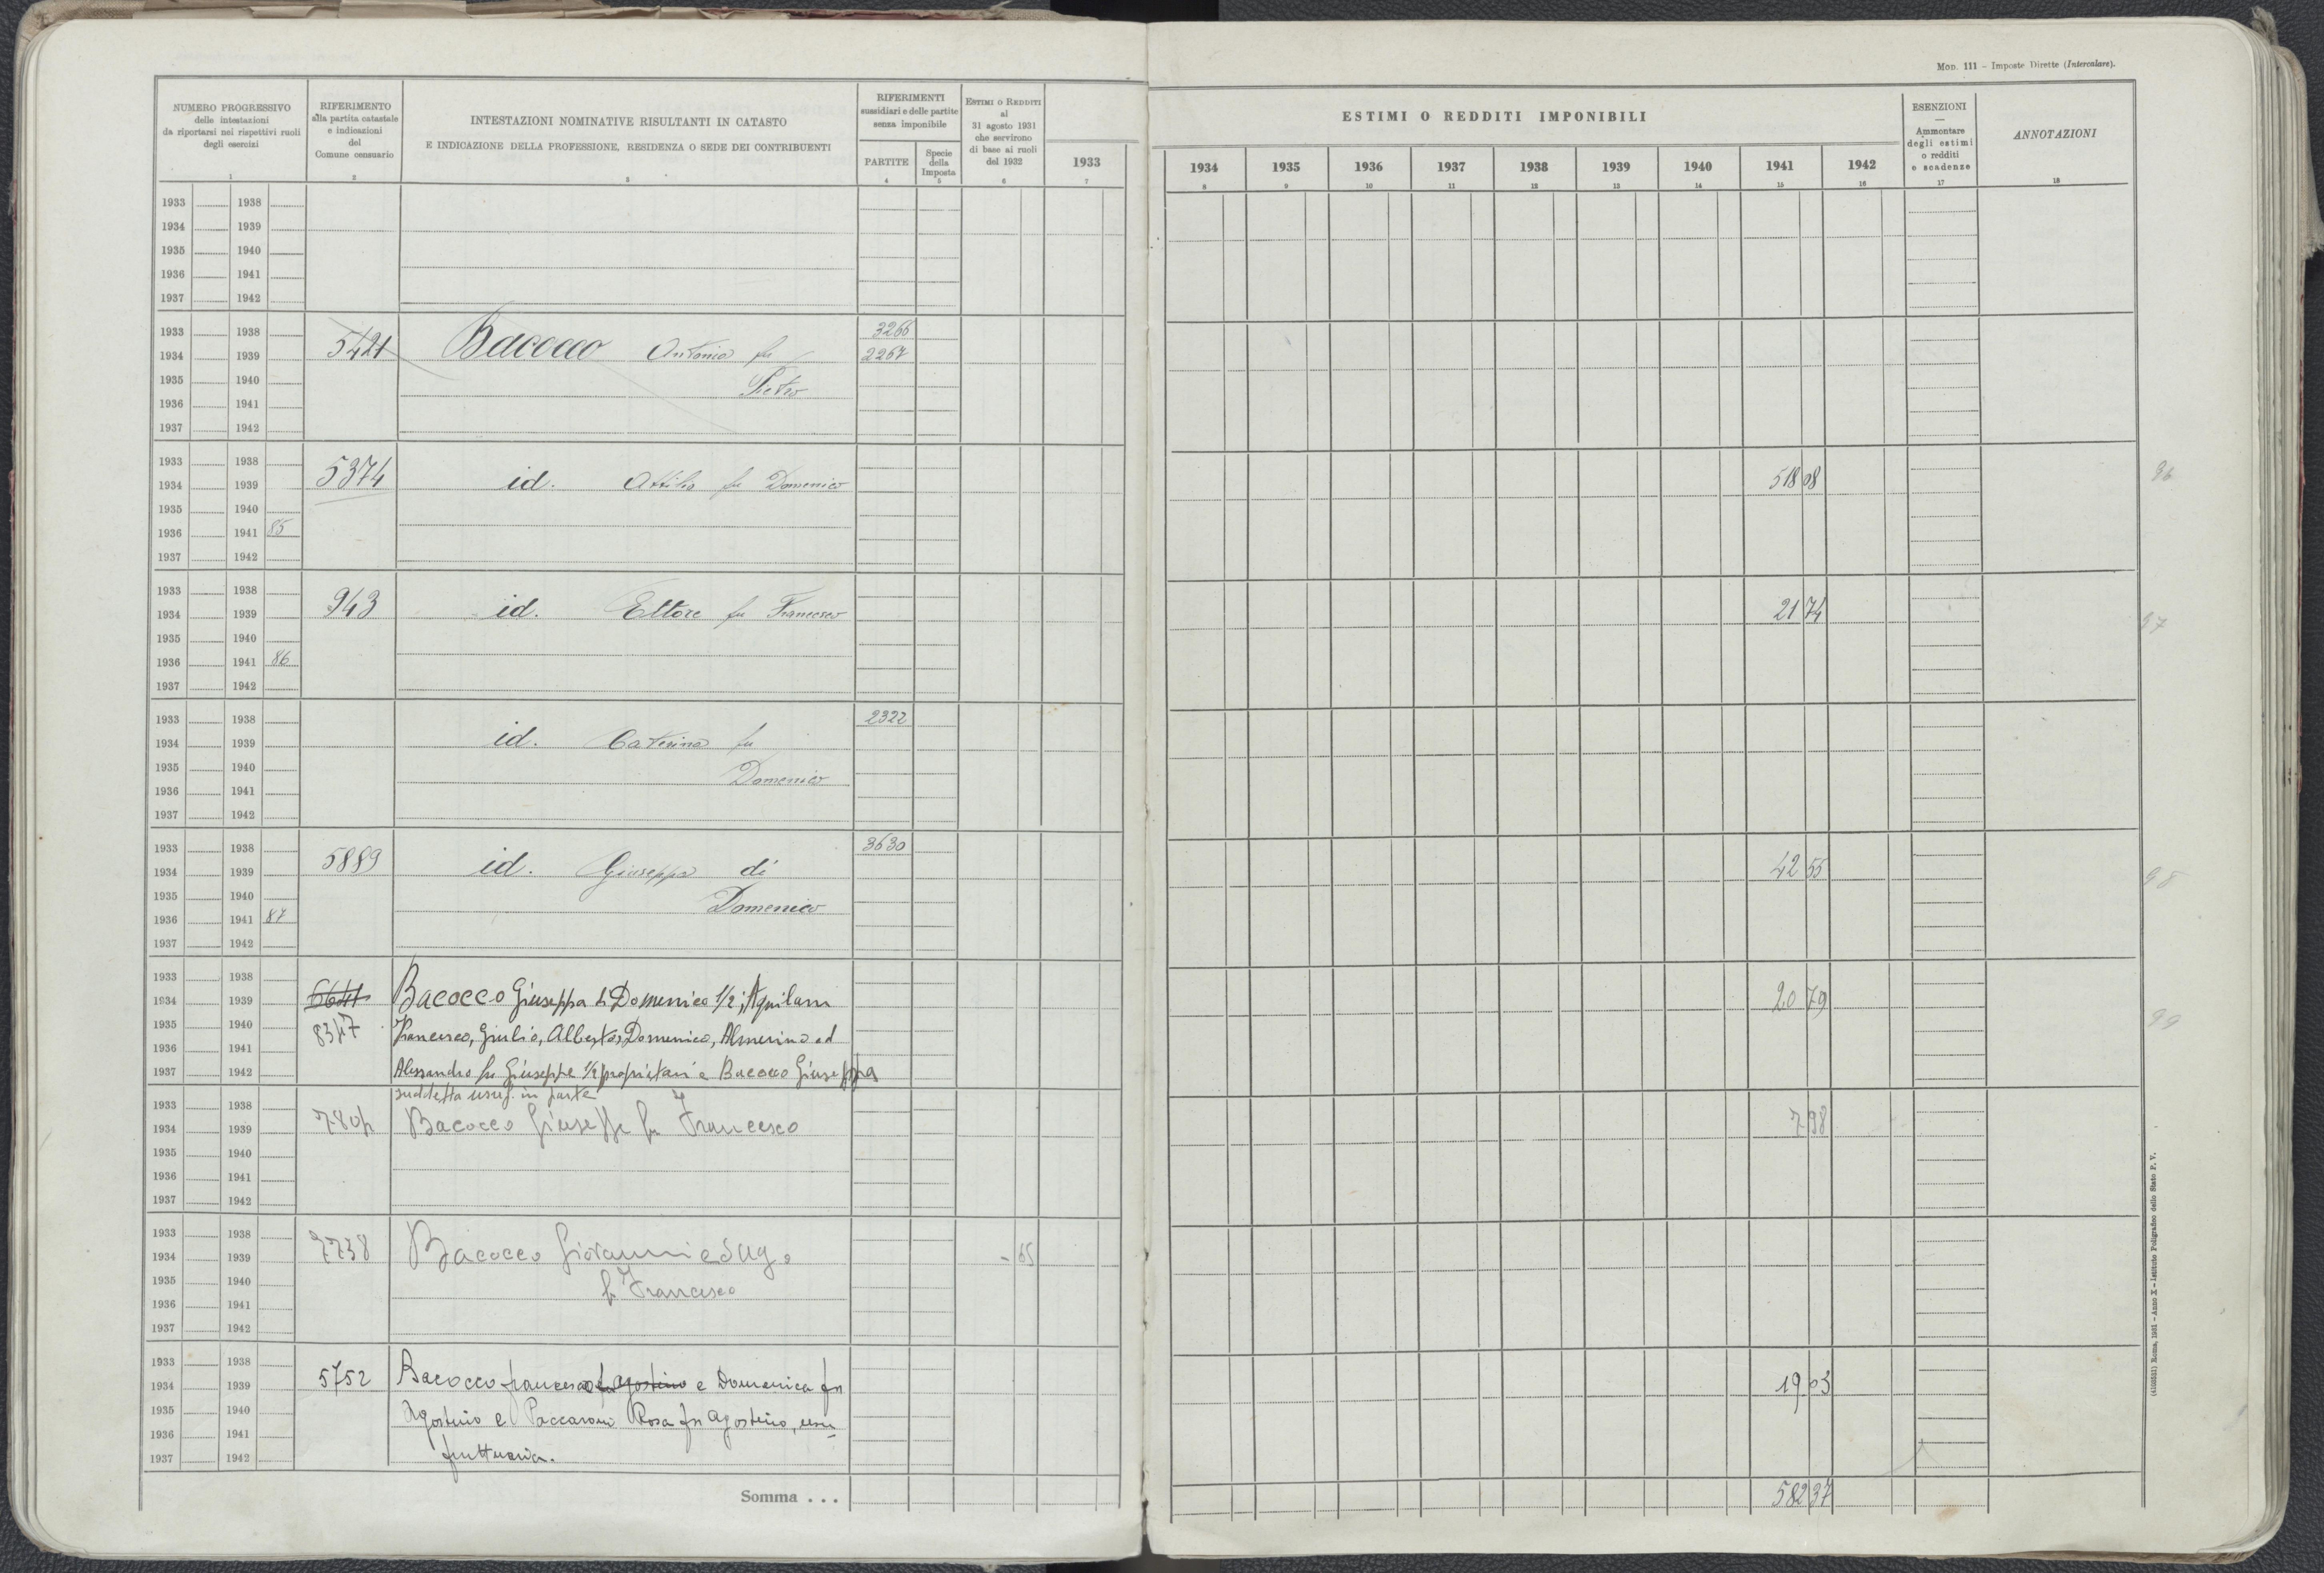 Mod. 111 – Imposte Dirette (Intercalare).
NUMERO PROGRESSIVO
delle intestazioni
da riportarsi nei rispettivi ruoli
degli esercizi
1
RIFERIMENTO
alla partita catastale
e indicazioni
del
Comune censuario
2
INTESTAZIONI NOMINATIVE RISULTANTI IN CATASTO
E INDICAZIONE DELLA PROFESSIONE, RESIDENZA O SEDE DEI CONTRIBUENTI
3
RIFERIMENTI
sussidiari e delle partite
senza imponibile
PARTITE
4
Specie
della
Imposta
5
ESTIMI O REDDITI
al
31 agosto 1931
che servirono
di base ai ruoli
del 1932
6
1933
7
ESTIMI O REDDITI IMPONIBILI
1934 1935 1936 1937 1938 1939 1940 1941 1942
8 9 10 11 12 13 14 15 16
ESENZIONI
—
Ammontare
degli estimi
o redditi
e scadenze
17
ANNOTAZIONI
18
1933 1938
1934 1939
1935 1940
1936 1941
1937 1942
1933 1938 3266
1934 1939 5421 Bacocco Antonio fu 2267
1935 1940 Pietro
1936 1941
1937 1942
1933 1938
1934 1939 5374 id. Attilio fu Domenico 518 08 96
1935 1940
1936 1941 85
1937 1942
1933 1938
1934 1939 943 id. Ettore fu Francesco 21 74 97
1935 1940
1936 1941 86
1937 1942
1933 1938 2322
1934 1939 id. Caterina fu
1935 1940 Domenico
1936 1941
1937 1942
1933 1938 3630
1934 1939 5889 id. Giuseppa di 42 55 98
1935 1940 Domenico
1936 1941 87
1937 1942
1933 1938
1934 1939 6641 Bacocco Giuseppa di Domenico 1/2; Aquilani 20 79 99
1935 1940 8347 Francesco, Giulio, Alberto, Domenico, Almerino ed
1936 1941
1937 1942 Alessandro fu Giuseppe 1/2 proprietari e Bacocco Giuseppa
suddetta usuf. in parte
1933 1938
1934 1939 7804 Bacocco Giuseppe fu Francesco 7 98
1935 1940
1936 1941
1937 1942
1933 1938
1934 1939 7738 Bacocco Giovanni ed Ug. - 65
1935 1940 fu Francesco
1936 1941
1937 1942
1933 1938
1934 1939 5752 Bacocco Francesco fu Agostino e Domenica fu 19 03
1935 1940 Agostino e Paccaroni Rosa fu Agostino, usu
1936 1941
1937 1942 fruttuaria.
Somma . . . 582 37
(4102551) Roma, 1931 – Anno X – Istituto Poligrafico dello Stato P. V.